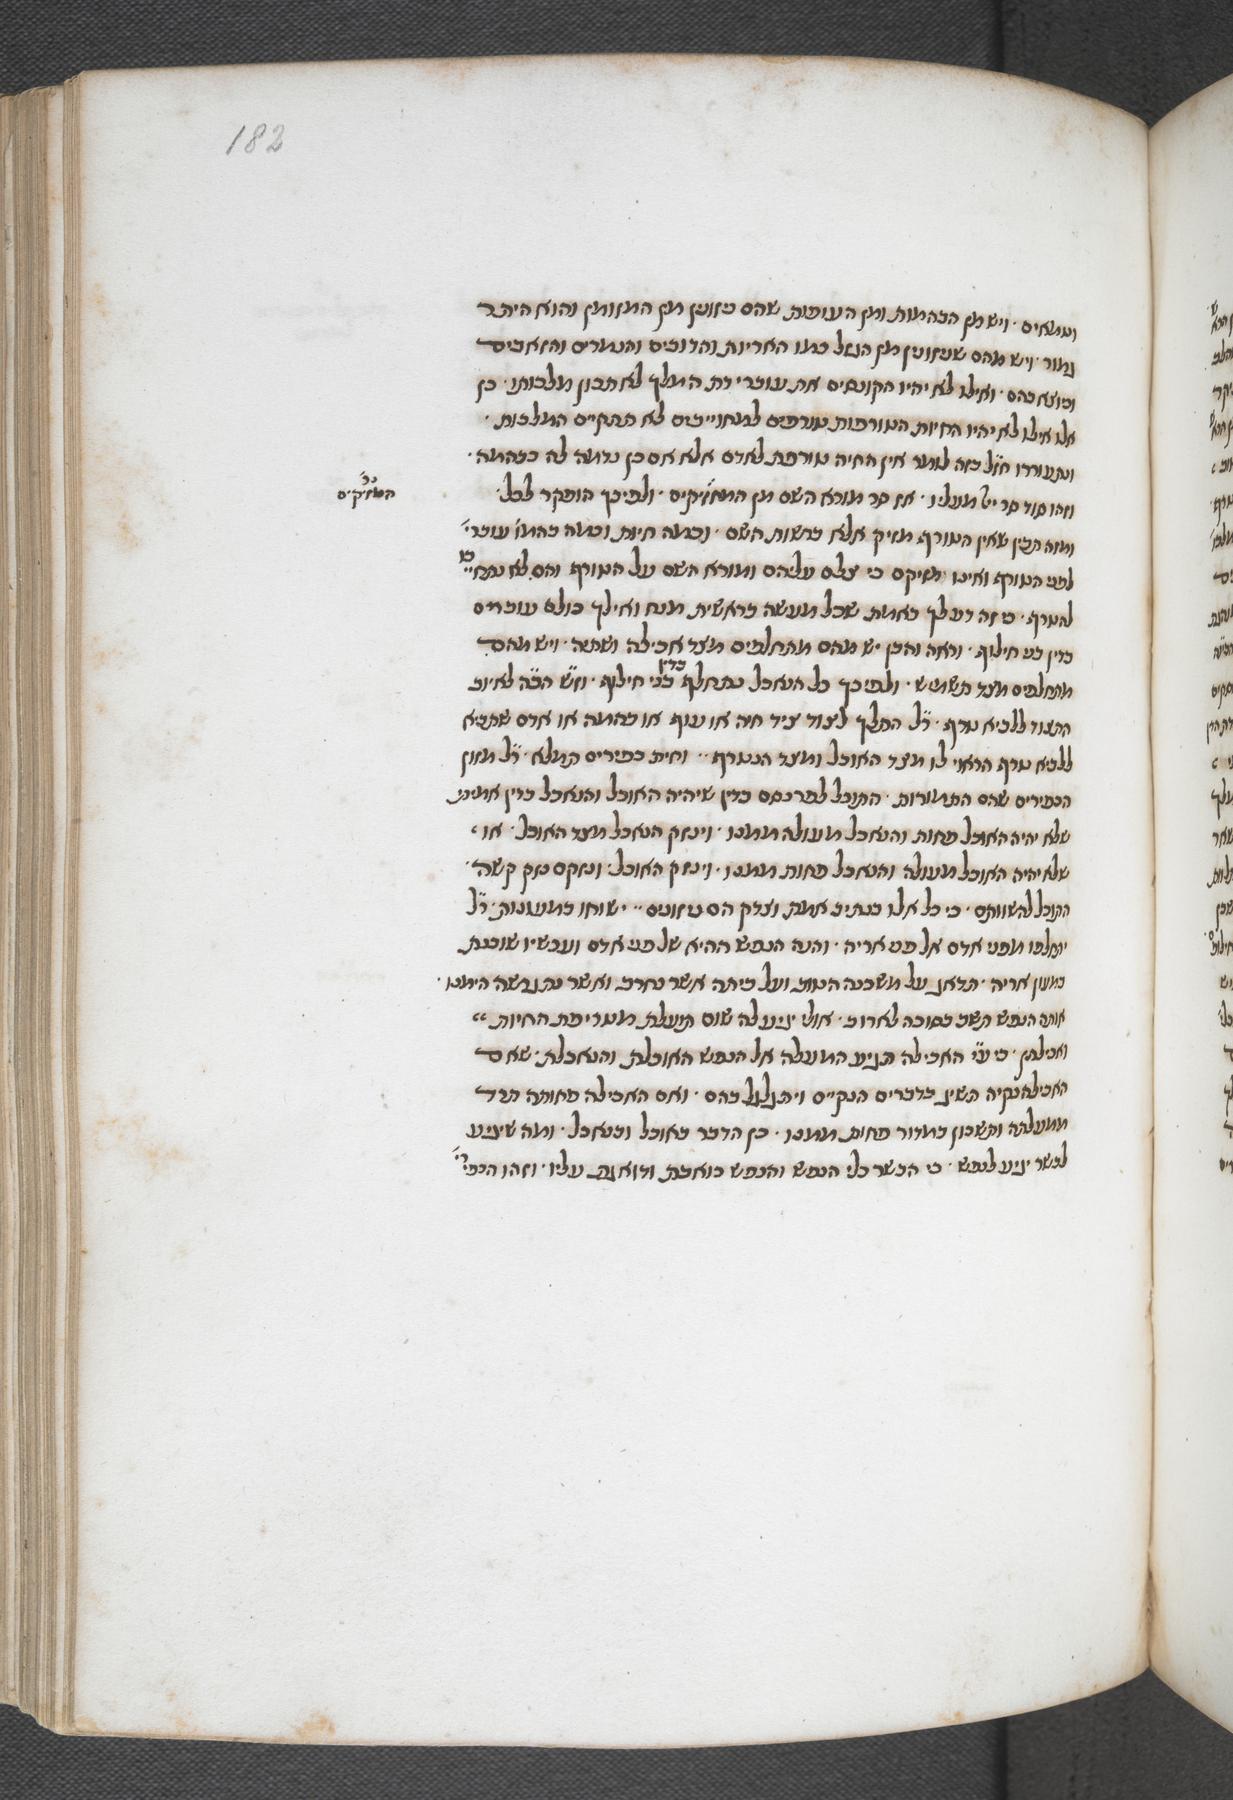 182
וטמאים · ויש מן הבהמות ומן העופות שהם ניזונין מן המזומן והוא היתר
גמור · ויש מהם שניזונין מן הגזל כמו האריות והדובים והנמרים והזאבים
וכיוצא בהם · ואילו לא יהיו הקונסים את עוברי דת המלך לא תכון מלכותו · כן
אלו אילו לא יהיו החיות הטורפות טורפים למחוייבים לא תתקיים המלכות ·
ונתעוררו חז״ל בזה לומר אין החיה טורפת לאדם אלא אם כן נדמה לה כבהמה ·
וזהו סוד סר צלם מעליו · אז סר מורא השם מן המזיקים · ולפיכך הופקר לכל ·
המזיקים
ומזה תבין שאין הטורף מזיק אלא ברשות השם · וכמה חיות וכמה בהמו׳ עוברי׳
לפני הטורף ואינו מזיקם כי צלם עליהם ומורא השם על הטורף והם לא נתחייבו
להטרף · כי זה דעלך באמת שכל מעשה בראשית מנח ואילך כולם עוברים
כדין בני חילוף · וראה והבן יש מהם מתחלפים מצד אכילה ושתיה · ויש מהם
מתחלפים מצד תשמיש · ולפיכך כל הנאכל נתחלף כדין בני חילוף · וז״ש הב״ה לאיוב
התצוד ללביא טרף · ר״ל התלך לצוד ציד חיה או עוף או בהמה או אדם שתביא
ללביא טרף הראוי לו מצד האוכל ומצד הנטרף ·· וחית כפירים תמלא · ר״ל מזון
הכפירים שהם התמורות · התוכל לפרנסם בדין שיהיה האוכל והנאכל בדין אמיתי
שלא יהיה האוכל פחות והנאכל מעולה ממנו · וינזק הנאכל מצד האוכל · או
שלא יהיה האוכל מעולה והנאכל פחות ממנו · וינזק האוכל · ונזקם נזק קשה ·
התוכל להשוותם · כי כל אלו בנתיב אמת וצדק הם ניזונים ·· ישוחו במעונות · ר״ל
יתחלפו מפני אדם אל פני אריה · והנה הנפש ההיא של פני אדם ועכשיו שוכנת
במעון אריה · תדאג על משכנה הטוב ועל ביתה אשר נחרב ואשר נתגרשה הימנו ·
אותה הנפש תשב בסוכה לארוב · אולי יגיע לה שום תועלת מטריפת החיות
ואכילתן · כי ע״י האכילה תגיע המעלה אל הנפש האוכלת והנאכלת · שאם
האכילה נקיה תשיג בדברים הנקיים ויתגלגל בהם · ואם האכילה פחותה תרד
ממעלתה ותשכון במדור פחות ממנו · כן הדבר באוכל ובנאכל · ומה שיגיע
לבשר יגיע לנפש · כי הבשר כלי הנפש והנפש כואבת ודואגת עליו · וזהו הכפי׳